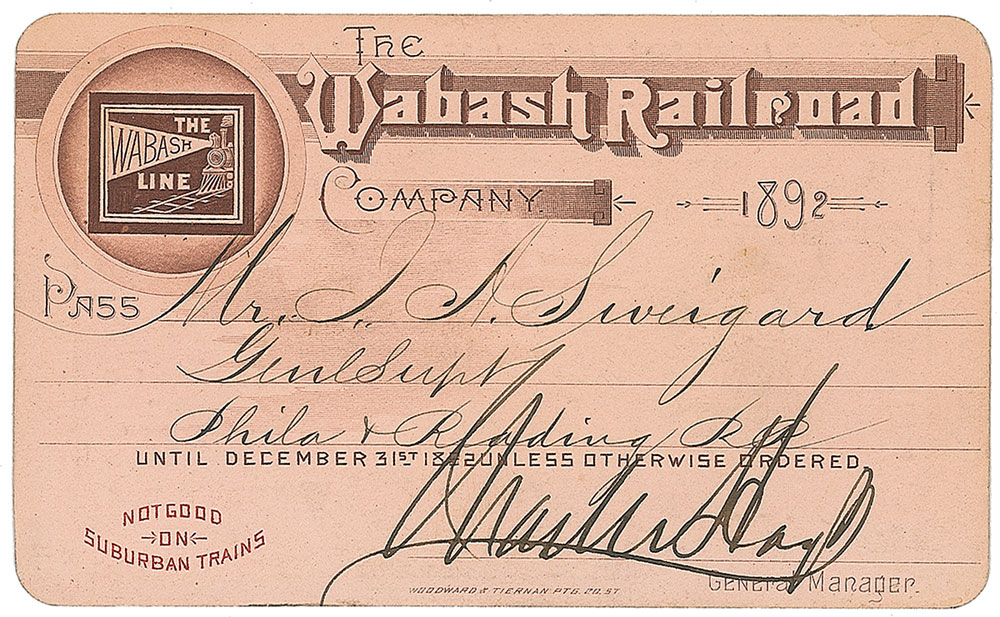 The
Wabash Railroad
Company.
1892
THE
WABASH
LINE
Pass Mr. I. A. Sweigard
Genl Supt
Phila & Reading RR
UNTIL DECEMBER 31ST 1892 UNLESS OTHERWISE ORDERED
NOT GOOD
ON
SUBURBAN TRAINS
Charles M Hays
General Manager.
WOODWARD & TIERNAN PTG. CO. ST